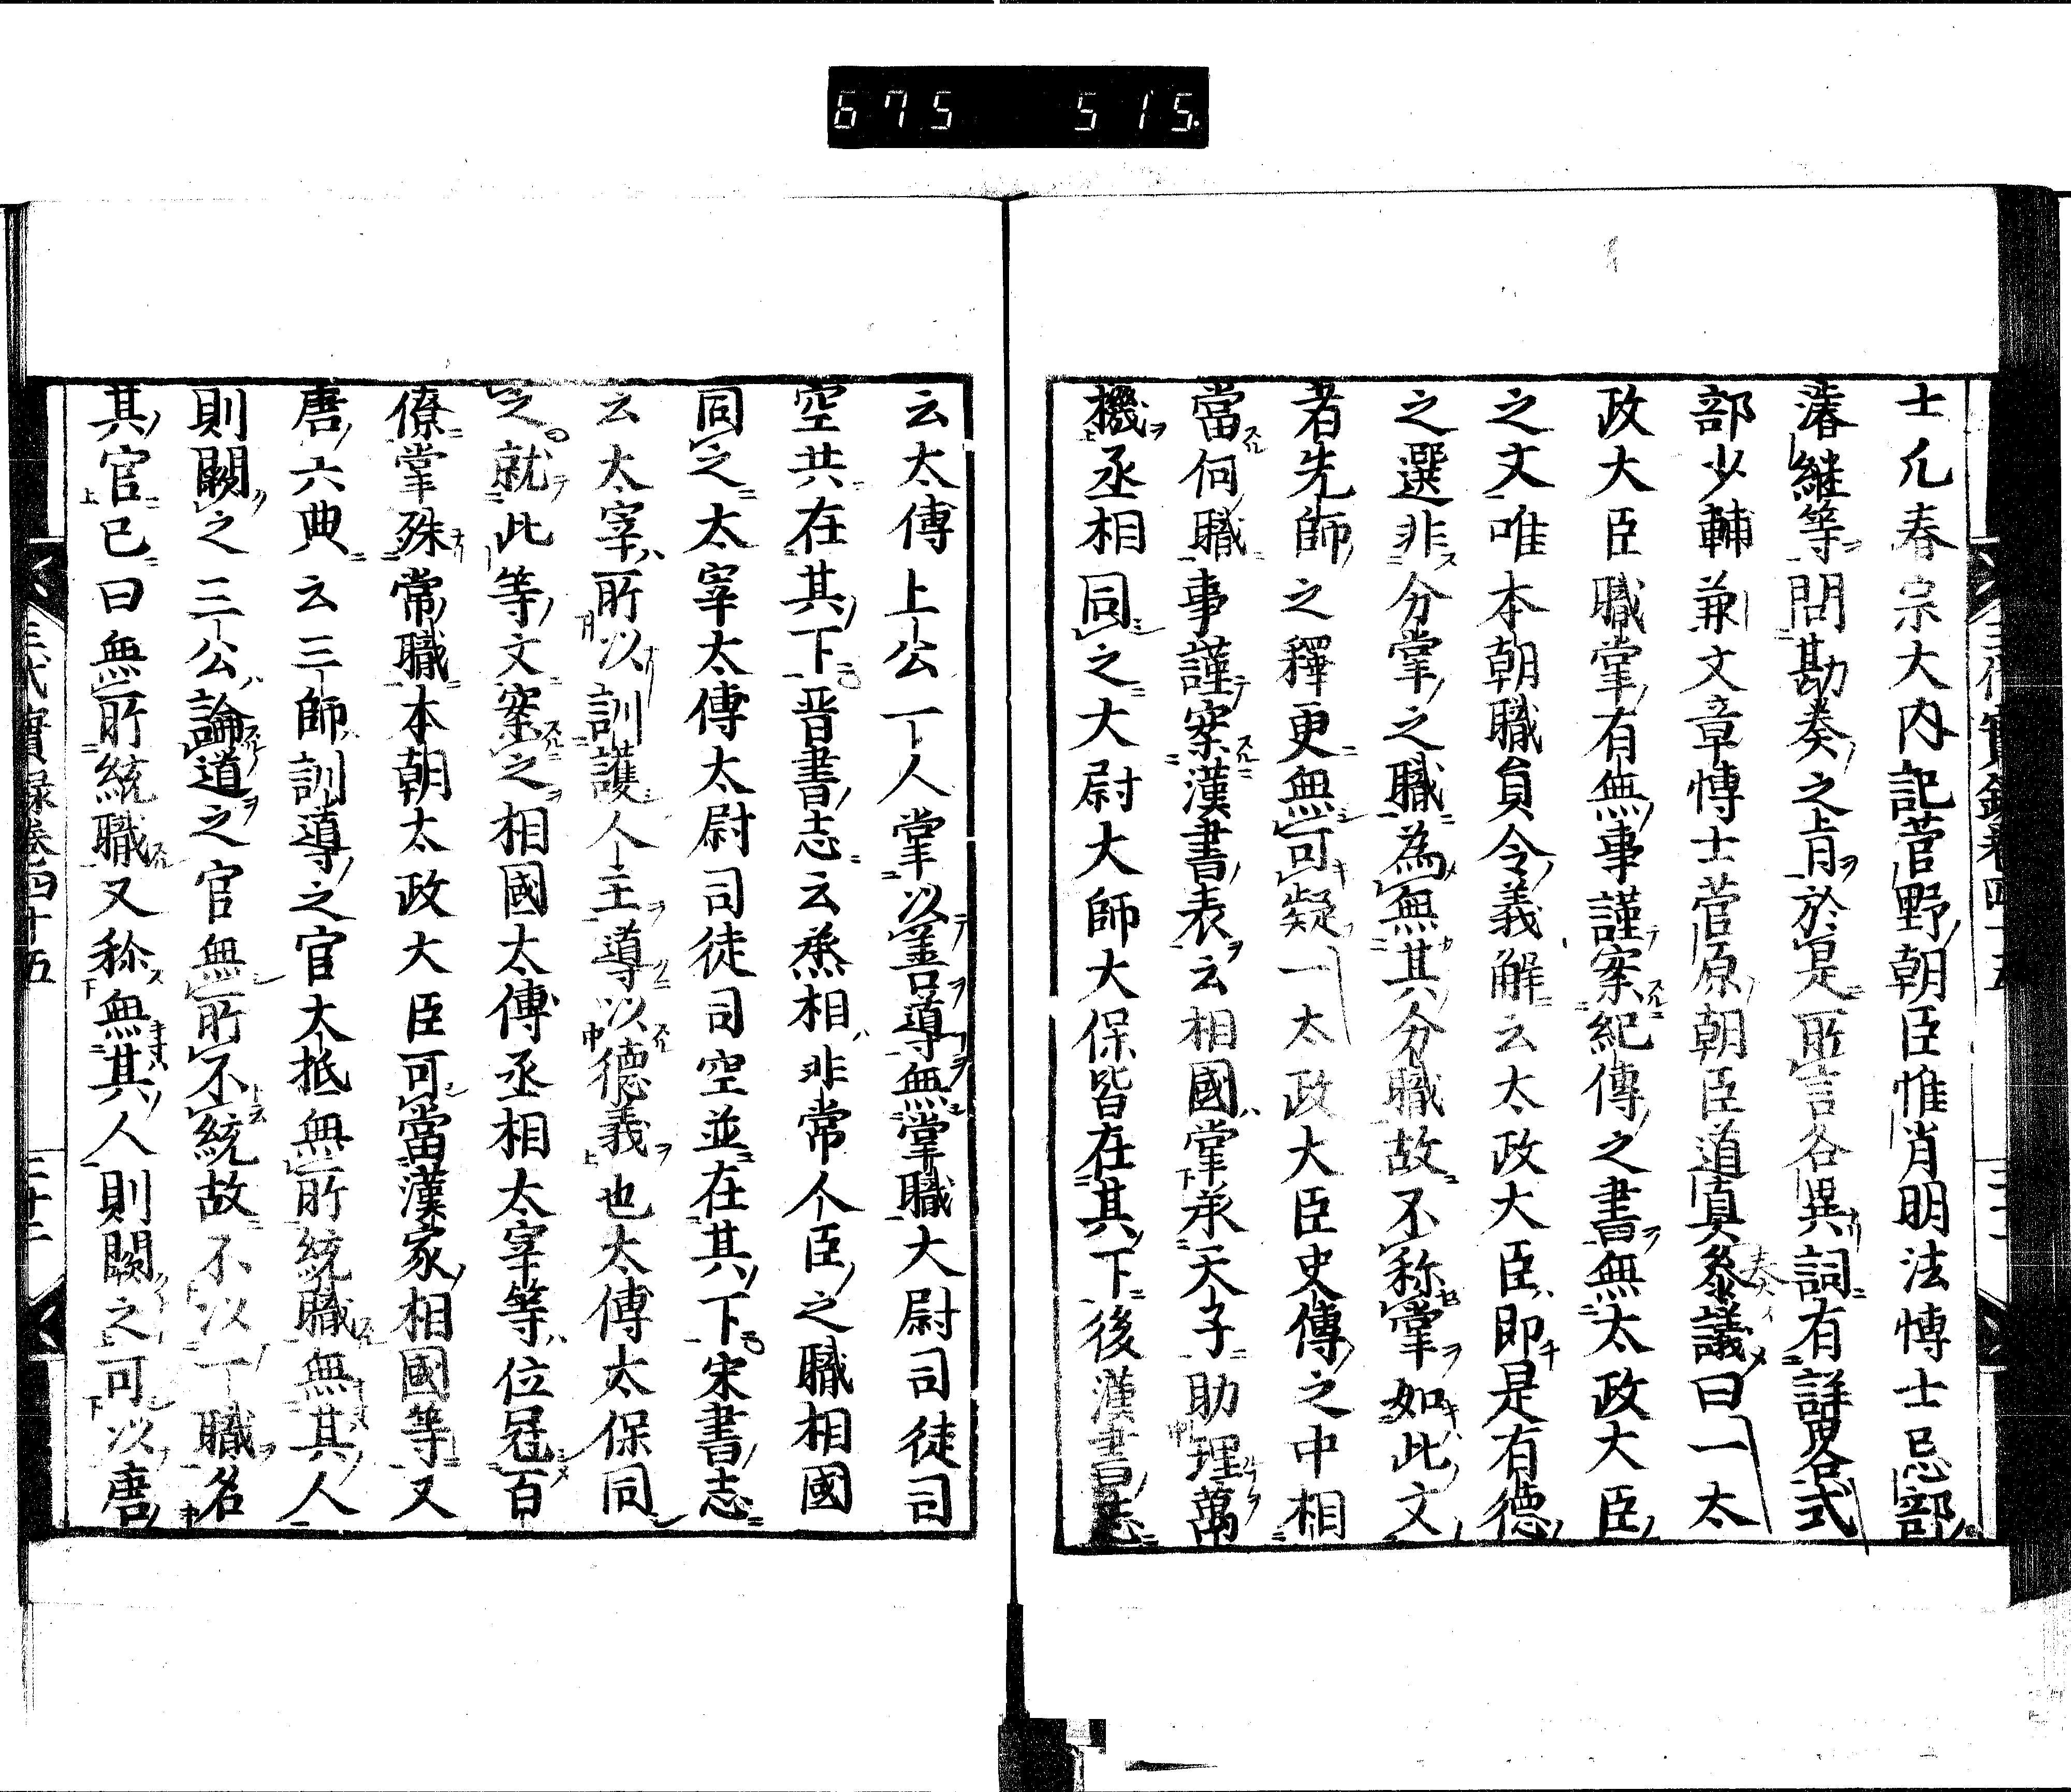 675 515
士凡春宗大內記菅野朝臣惟肖明法博士忌部
濬継等問勘奏之上月於是所言各異詞有詳畧式
部少輔兼文章博士菅原朝臣道真叅議曰一太
政大臣職掌有無事謹案紀傳之書無太政大臣
之文唯本朝職員令義解云太政大臣即是有德
之選非分掌之職為無其分職故不称掌如此文
者先師之釋更無可疑一太政大臣史傳之中相
當何職事謹案漢書表云相國掌承天子助理萬
機丞相同之大尉大師大保皆在其下後漢書志
云太傅上公一人掌以善導無掌職大尉司徒司
空共在其下晋書志云丞相非常人臣之職相國
同之太宰太傅太尉司徒司空並在其下宋書志
云太宰所以訓護人主導以德義也太傅太保同
之就此等文案之相國太傅丞相太宰等位冠百
僚掌殊常職本朝太政大臣可當漢家相國等又
唐六典云三師訓導之官太抵無所統職無其人
則闕之三公論道之官無所不統故不以一職名
其官已曰無所統職又称無其人則闕之可以唐
三代實録卷四十五